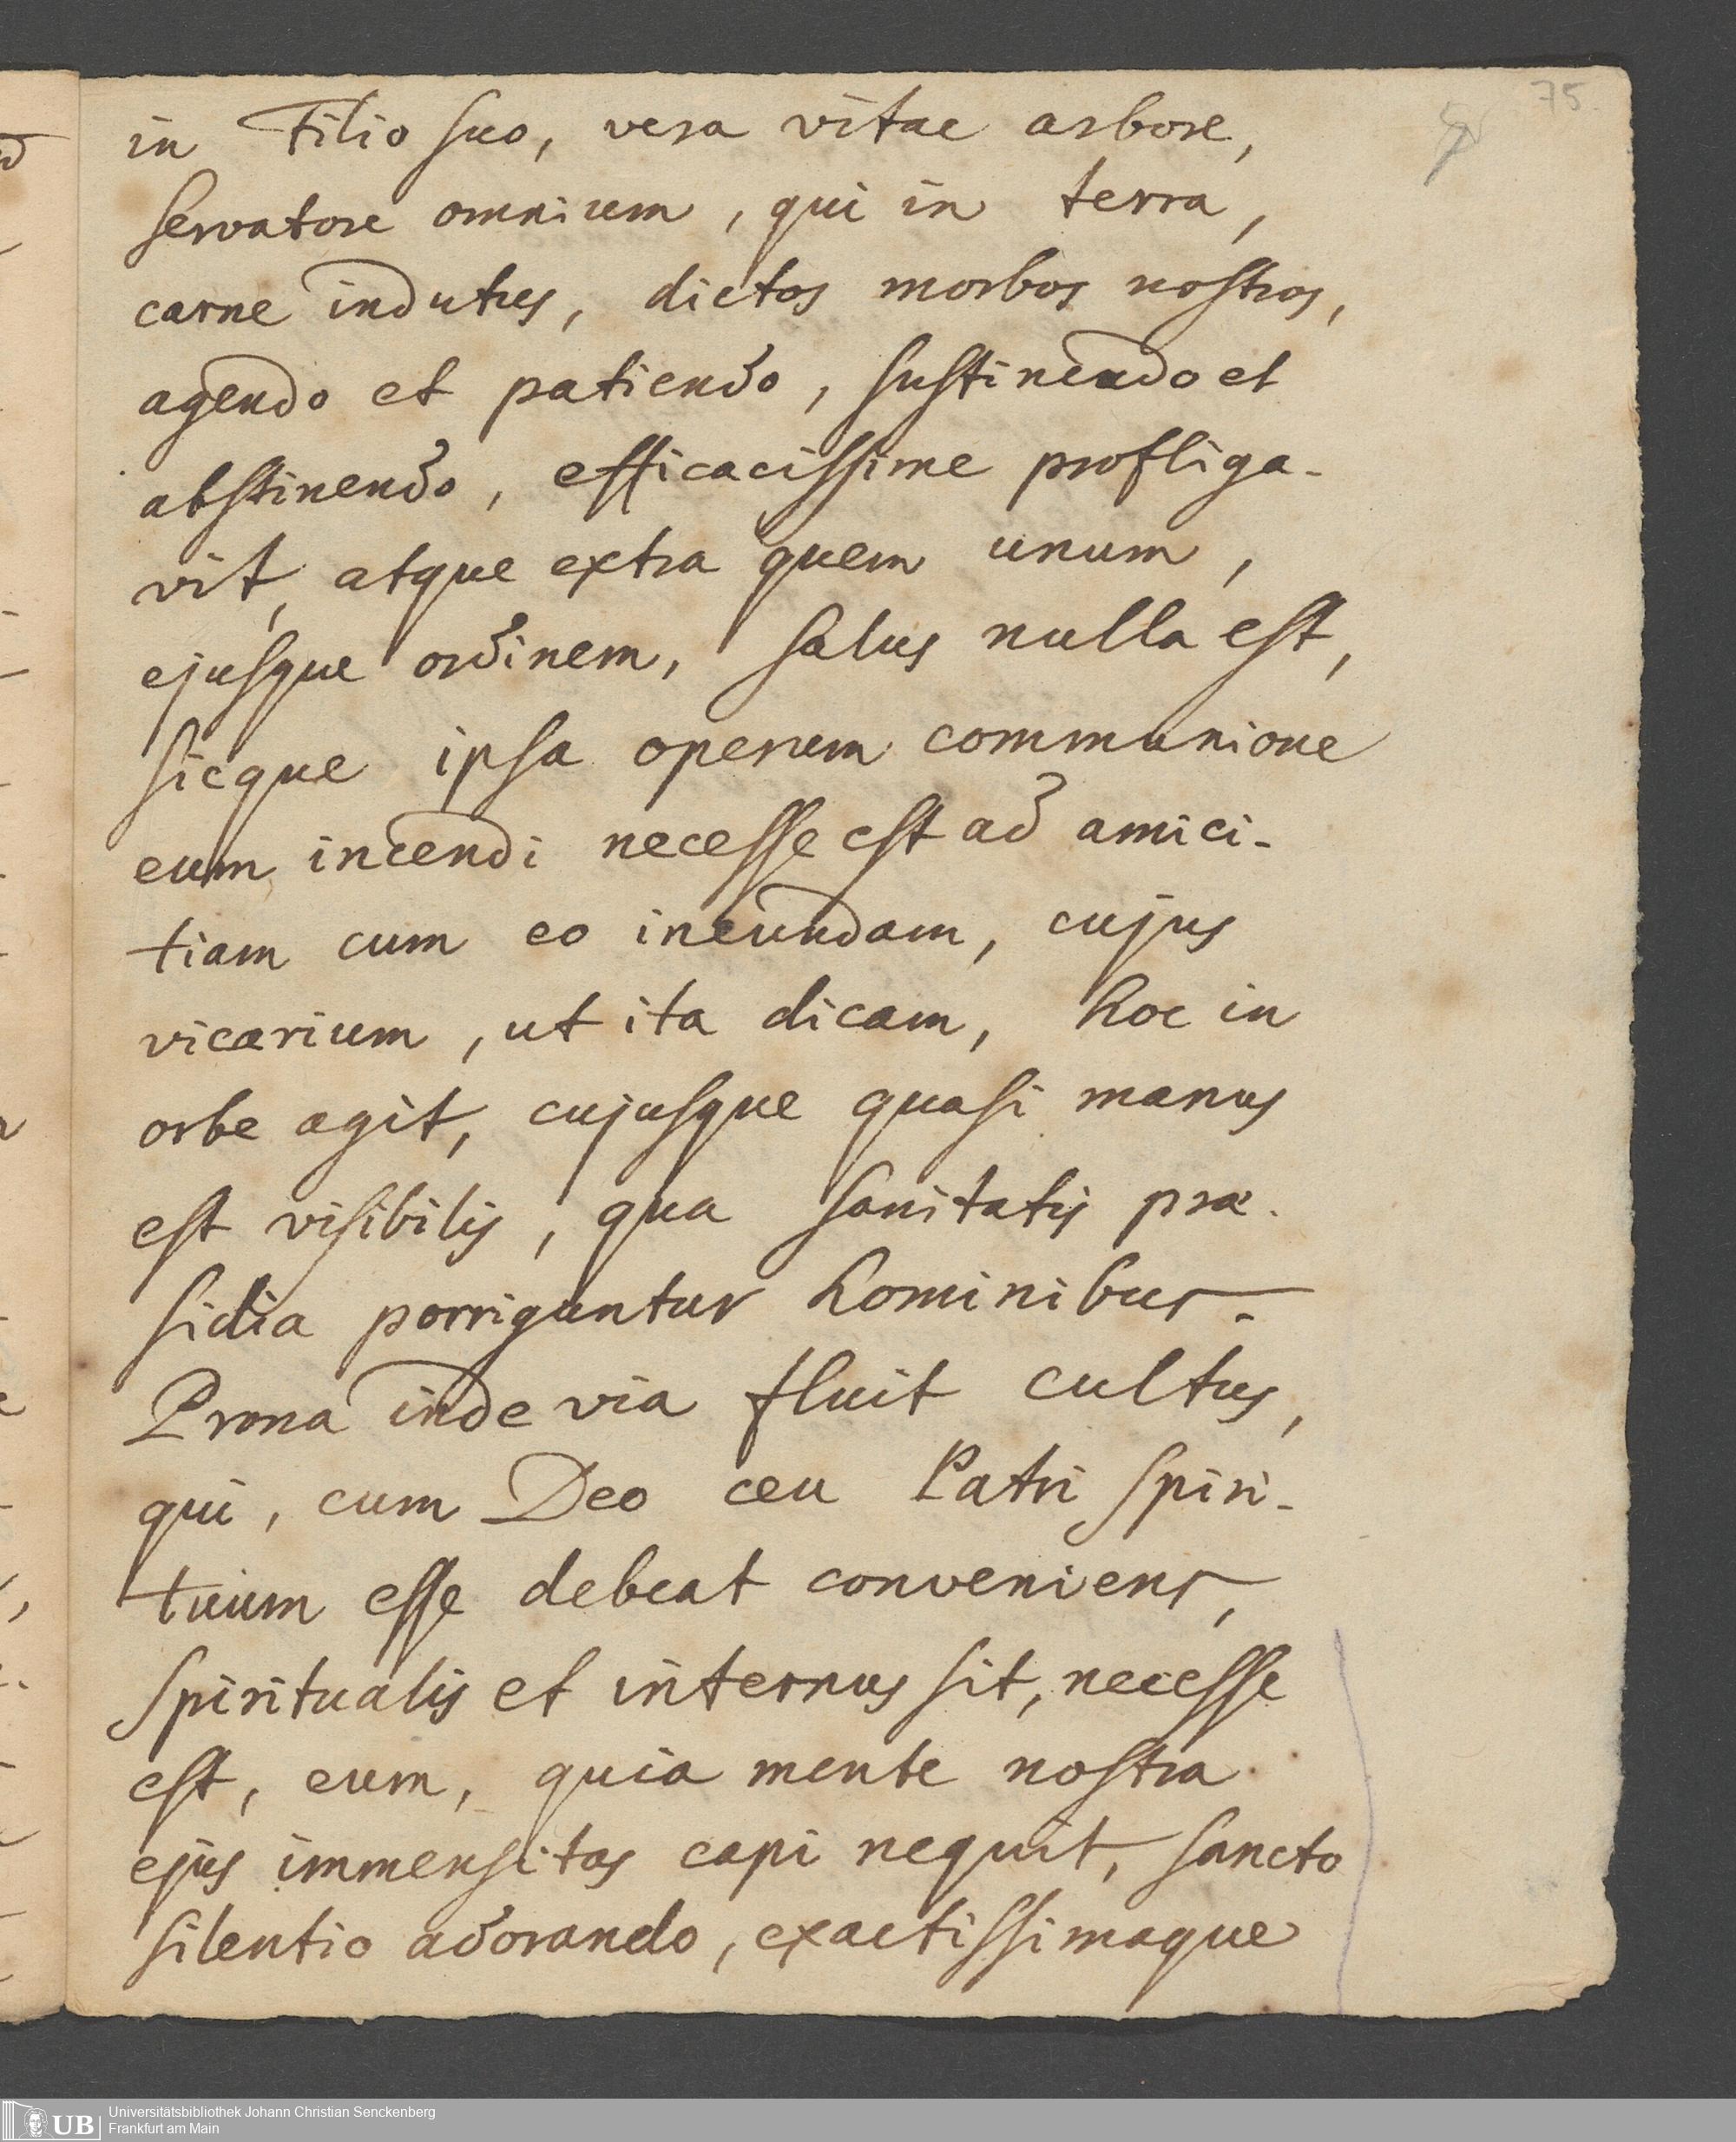 75.
in Filio suo, vera vitae arbore,
servatore omnium, qui in terra,
carne indutus, dictos morbos nostros,
agendo et patiendo, sustinendo et
abstinendo, efficacissime profliga-
vit, atque extra quem unum,
ejusque ordinem, salus nulla est,
sicque ipsa operum communione
eum incendi necesse est ad amici-
tiam cum eo ineundam, cujus
vicarium, ut ita dicam, hoc in
orbe agit, cujusque quasi manus
est visibilis, qua sanitatis prae-
sidia porriguntur hominibus.
Prona inde via fluit cultus,
qui, cum Deo ceu Patri spiri-
tuum esse debeat conveniens,
spiritualis et internus sit, necesse
est, eum, quia mente nostra
ejus immensitas capi nequit, sancto
silentio adorando, exactissimaque
UB
Universitätsbibliothek Johann Christian Senckenberg
Frankfurt am Main